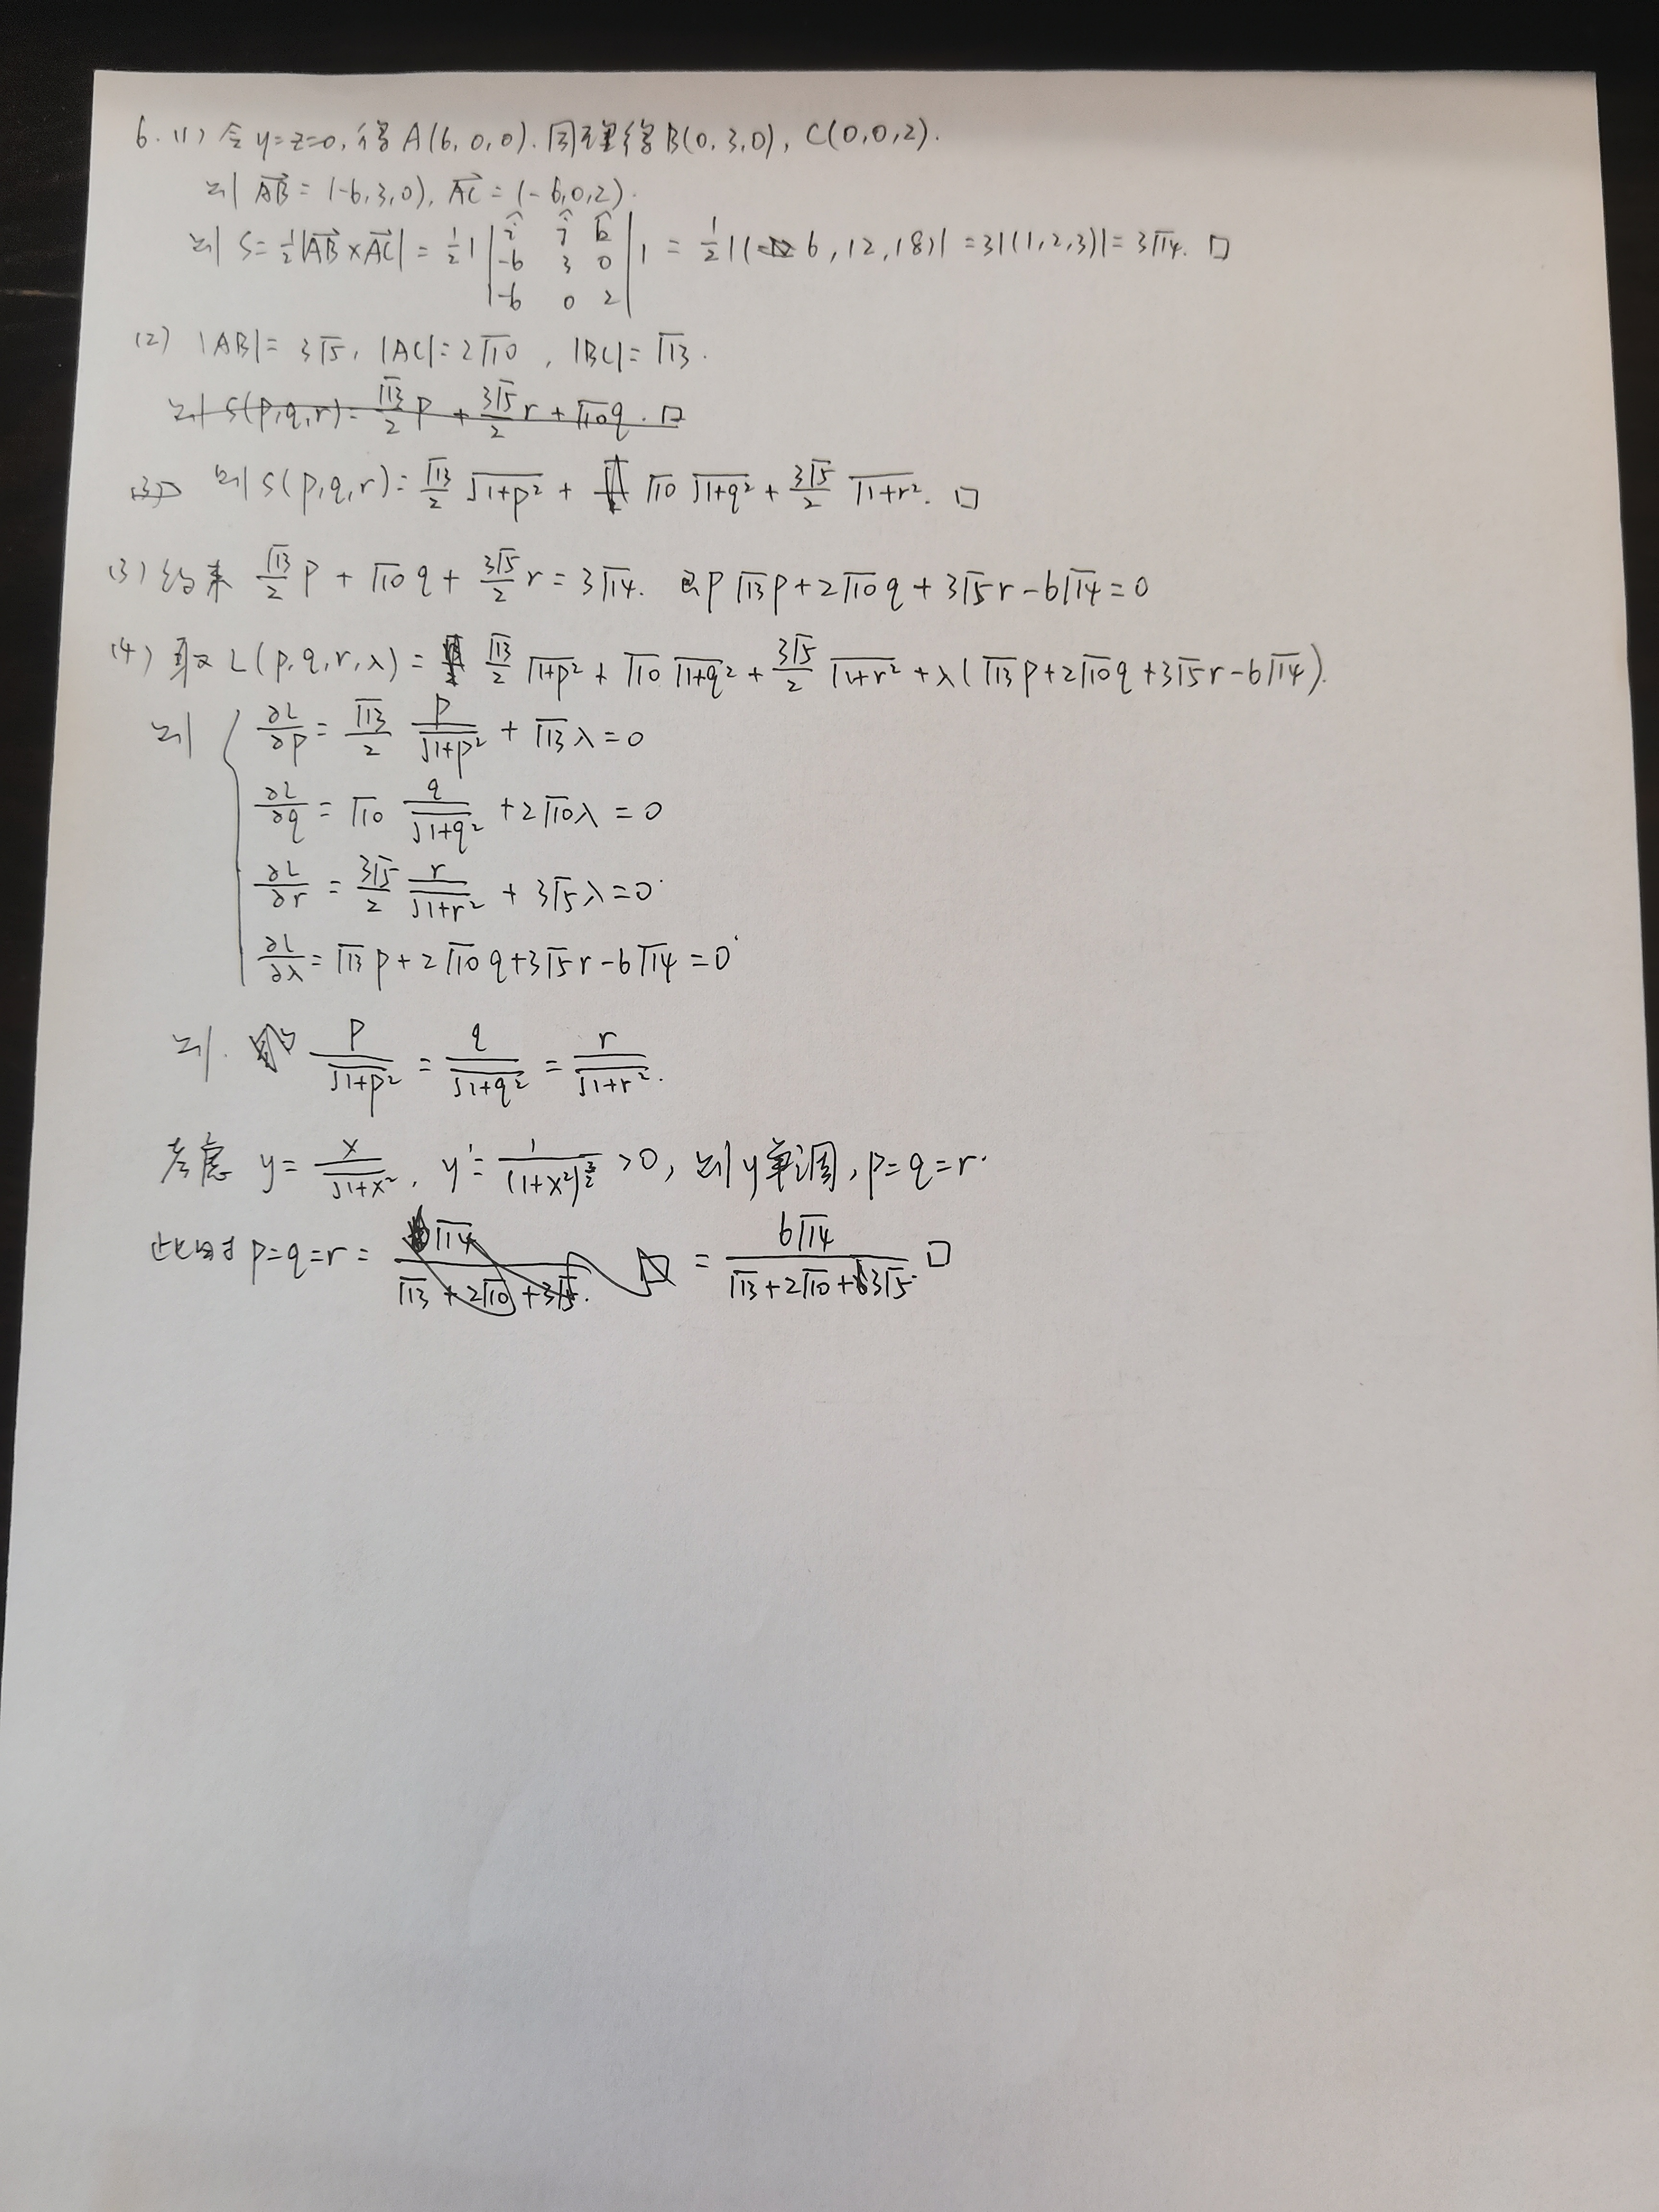 6. (1) 令 y=z=0, 得 A(6,0,0). 同理得 B(0,3,0), C(0,0,2).
则 $\overrightarrow{AB}$ = (-6,3,0), $\overrightarrow{AC}$ = (-6,0,2).
则 S = $\frac{1}{2}|\overrightarrow{AB}\times\overrightarrow{AC}|$ = $\frac{1}{2}|\begin{vmatrix}\hat{i} & \hat{j} & \hat{k}\\-6 & 3 & 0\\-6 & 0 & 2\end{vmatrix}|$ = $\frac{1}{2}$|(6,12,18)| = 3|(1,2,3)| = 3√14. □
(2) |AB| = 3√5, |AC| = 2√10, |BC| = √13.
则 S(p,q,r) = $\frac{\sqrt{13}}{2}$p + $\frac{3\sqrt{5}}{2}$r + √10q. □
(3) 则 S(p,q,r) = $\frac{\sqrt{13}}{2}\sqrt{1+p^2}$ + $\sqrt{10}\sqrt{1+q^2}$ + $\frac{3\sqrt{5}}{2}\sqrt{1+r^2}$. □
(3) 约束 $\frac{\sqrt{13}}{2}$p + √10q + $\frac{3\sqrt{5}}{2}$r = 3√14. 即 √13p + 2√10q + 3√5r - 6√14 = 0
(4) 取 L(p,q,r,λ) = $\frac{\sqrt{13}}{2}\sqrt{1+p^2}$ + $\sqrt{10}\sqrt{1+q^2}$ + $\frac{3\sqrt{5}}{2}\sqrt{1+r^2}$ + λ(√13p + 2√10q + 3√5r - 6√14).
则 { $\frac{\partial L}{\partial p}$ = $\frac{\sqrt{13}}{2}\frac{p}{\sqrt{1+p^2}}$ + √13λ = 0
$\frac{\partial L}{\partial q}$ = $\sqrt{10}\frac{q}{\sqrt{1+q^2}}$ + 2√10λ = 0
$\frac{\partial L}{\partial r}$ = $\frac{3\sqrt{5}}{2}\frac{r}{\sqrt{1+r^2}}$ + 3√5λ = 0.
$\frac{\partial L}{\partial λ}$ = √13p + 2√10q + 3√5r - 6√14 = 0.
则. $\frac{p}{\sqrt{1+p^2}}$ = $\frac{q}{\sqrt{1+q^2}}$ = $\frac{r}{\sqrt{1+r^2}}$.
考虑 y = $\frac{x}{\sqrt{1+x^2}}$, y' = $\frac{1}{(1+x^2)^{\frac{3}{2}}}$ > 0, 则 y 单调, p=q=r.
此时 p=q=r = $\frac{6\sqrt{14}}{\sqrt{13}+2\sqrt{10}+3\sqrt{5}}$. = $\frac{6\sqrt{14}}{\sqrt{13}+2\sqrt{10}+3\sqrt{5}}$. □